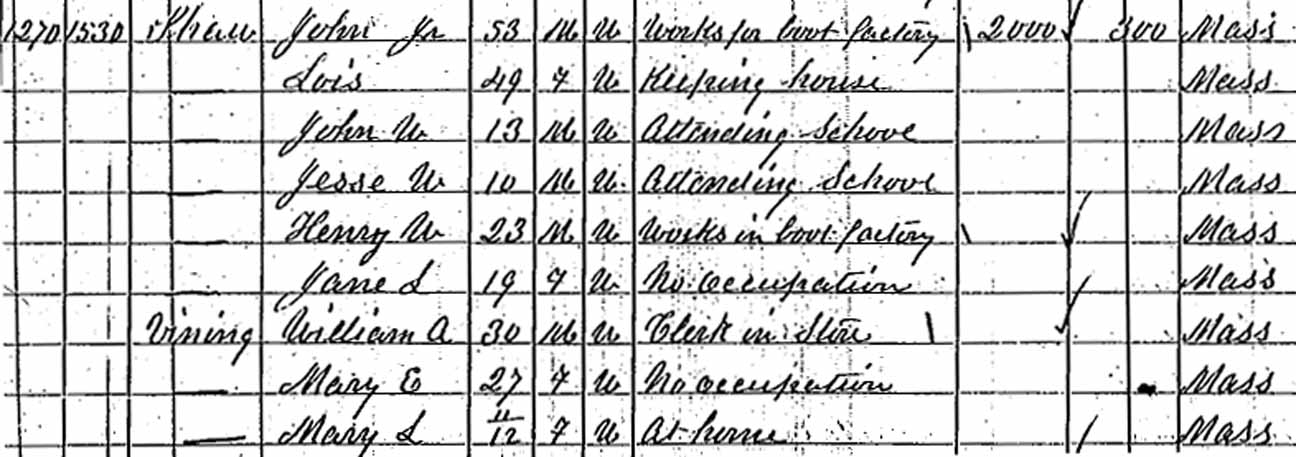 1270 1530 Shaw John Jr 53 M W Works for boot factory 2000 300 Mass
— Lois 49 F W Keeping house Mass
— John W 13 M W Attending School Mass
— Jesse W 10 M W Attending School Mass
— Henry W 23 M W Works in boot factory Mass
— Jane L 19 F W No occupation Mass
Vining William A 30 M W Clerk in Store Mass
— Mary E 27 F W No occupation Mass
— Mary L 11/12 F W At home Mass